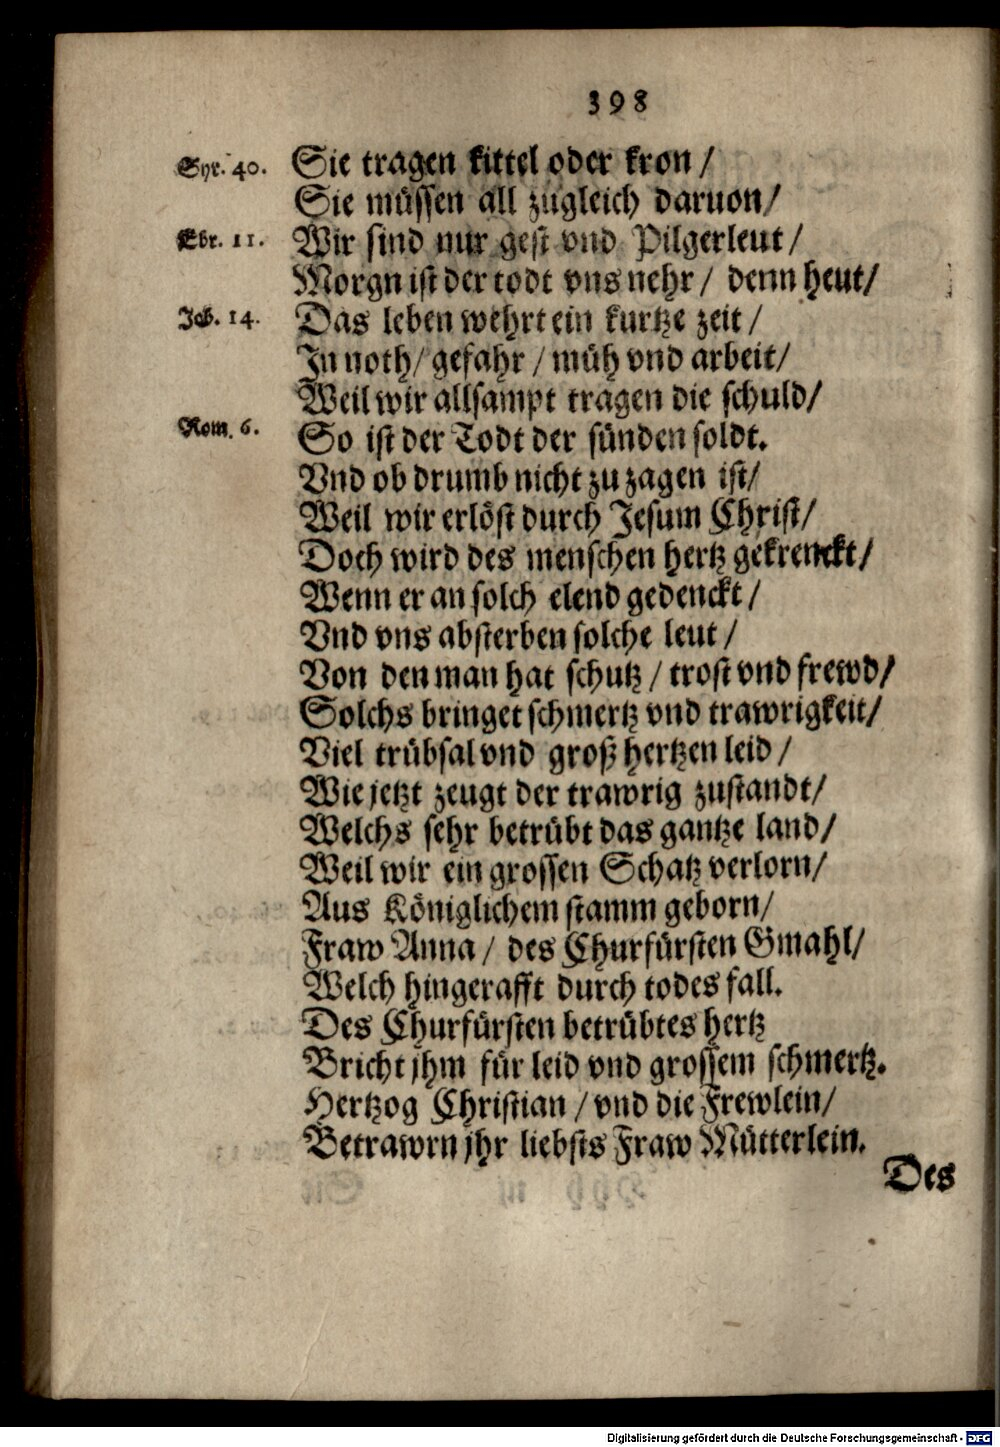 398
Syr. 40. Sie tragen kittel oder kron /
Sie müssen all zugleich daruon /
Ebr. 11. Wir sind nur gest vnd Pilgerleut /
Morgn ist der todt vns nehr / denn heut /
Job. 14. Das leben wehrt ein kurtze zeit /
In noth / gefahr / müh vnd arbeit /
Weil wir allsampt tragen die schuld /
Rom. 6. So ist der Todt der sünden soldt.
Vnd ob drumb nicht zu zagen ist /
Weil wir erlöst durch Jesum Christ /
Doch wird des menschen hertz gekrenckt /
Wenn er an solch elend gedenckt /
Vnd vns absterben solche leut /
Von den man hat schutz / trost vnd frewd /
Solchs bringet schmertz vnd trawrigkeit /
Viel trübsal vnd groß hertzen leid /
Wie jetzt zeugt der trawrig zustandt /
Welchs sehr betrübt das gantze land /
Weil wir ein grossen Schatz verlorn /
Aus Königlichem stamm geborn /
Fraw Anna / des Churfürsten Gmahl /
Welch hingerafft durch todes fall.
Des Churfürsten betrübtes hertz
Bricht jhm für leid vnd grossem schmertz.
Hertzog Christian / vnd die Frewlein /
Betrawrn jhr liebsts Fraw Mütterlein.
Des
Digitalisierung gefördert durch die Deutsche Forschungsgemeinschaft - DFG